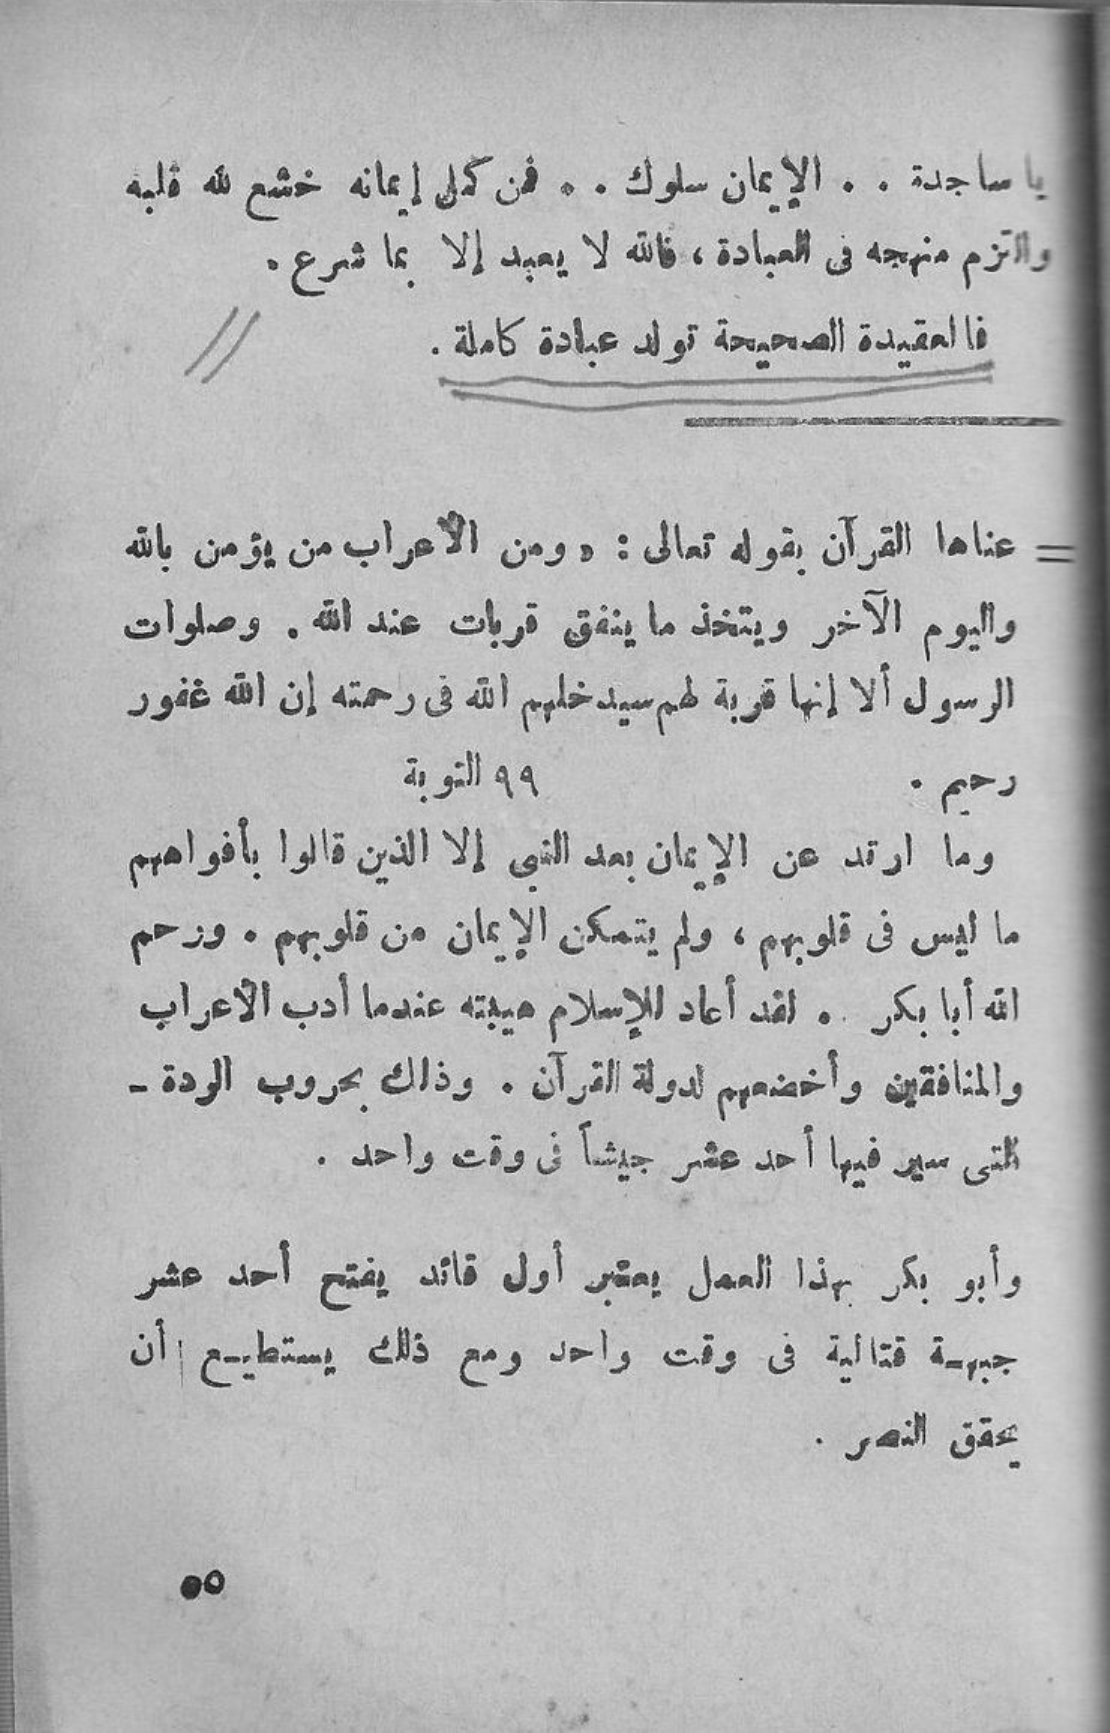 يا ساجدة . . الإيمان سلوك . . فمن كمل إيمانه خشع لله قلبه
والتزم منهجه فى العبادة ، فالله لا يعبد إلا بما شرع .
فالعقيدة الصحيحة تولد عبادة كاملة .
= عناها القرآن بقوله تعالى : « ومن الأعراب من يؤمن بالله
واليوم الآخر ويتخذ ما ينفق قربات عند الله . وصلوات
الرسول ألا إنها قربة لهم سيدخلهم الله فى رحمته إن الله غفور
رحيم . ٩٩ التوبة
وما ارتد عن الإيمان بعد النبى إلا الذين قالوا بأفواههم
ما ليس فى قلوبهم ، ولم يتمكن الإيمان من قلوبهم . ورحم
الله أبا بكر . . لقد أعاد للإسلام هيبته عندما أدب الأعراب
والمنافقين وأخضعهم لدولة القرآن . وذلك بحروب الردة -
التى سير فيها أحد عشر جيشاً فى وقت واحد .
وأبو بكر بهذا العمل يعتبر أول قائد يفتح أحد عشر
جبهـة قتالية فى وقت واحد ومع ذلك يستطيـع أن
يحقق النصر .
٥٥